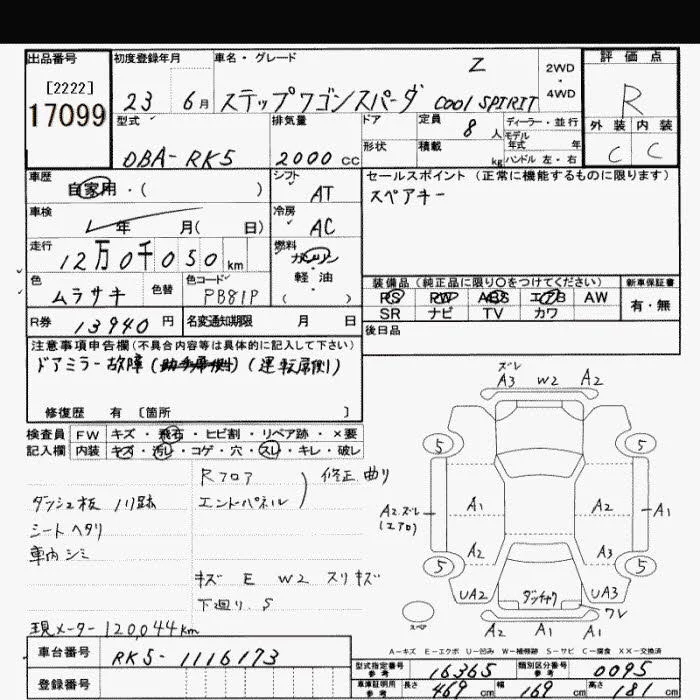 出品番号
[2222]
17099
初度登録年月
23 6月
車名・グレード
Z
ステップワゴンスパーダ COOL SPIRIT
2WD
・
4WD
評価点
R
外装 内装
C C
型式
DBA-RK5
排気量
2000 cc
ドア
形状
定員
8 人
積載
kg
ディーラー・並行
モデル
年式 年
ハンドル 左・右
車歴
自家用・( )
シフト
AT
車検
年 月( 日)
冷房
AC
走行
12万0千050 km
燃料
ガソリン
・
軽・油
( )
色
ムラサキ
色替
色コード
PB81P
R券
13940 円
名変通知期限 月 日
セールスポイント (正常に機能するものに限ります)
スペアキー
装備品 (純正品に限り○をつけてください)
PS PW ABS エアB AW
SR ナビ TV カワ
新車保証書
有・無
後日品
注意事項申告欄(不具合内容等は具体的に記入して下さい)
ドアミラー故障 (助手席側) (運転席側)
修復歴 有 [箇所 ]
検査員
記入欄
FW キズ・飛石・ヒビ割・リペア跡・×要
内装 キズ・汚レ・コゲ・穴・スレ・キレ・破レ
Rフロア
エンドパネル
修正、曲り
ダッシュ板 ノリ跡
シートヘタリ
車内シミ
キズ E W2 スリキズ
下廻り S
現メーター 120,044km
車台番号
RK5-1116173
登録番号
ズレ
A3 W2 A2
5 5
A2.ズレ
(エアロ)
A1 A2 A1
A2 A3
5 5
UA2 ダンチャク UA3
ワレ
A2 A1 A1
スペア
A－キズ E－エクボ U－凹み W－補修跡 S－サビ C－腐食 XX－交換済
型式指定番号
参考
16365
類別区分番号
参考
0095
車庫証明用
参考
長さ 469 cm 幅 169 cm 高さ 181 cm